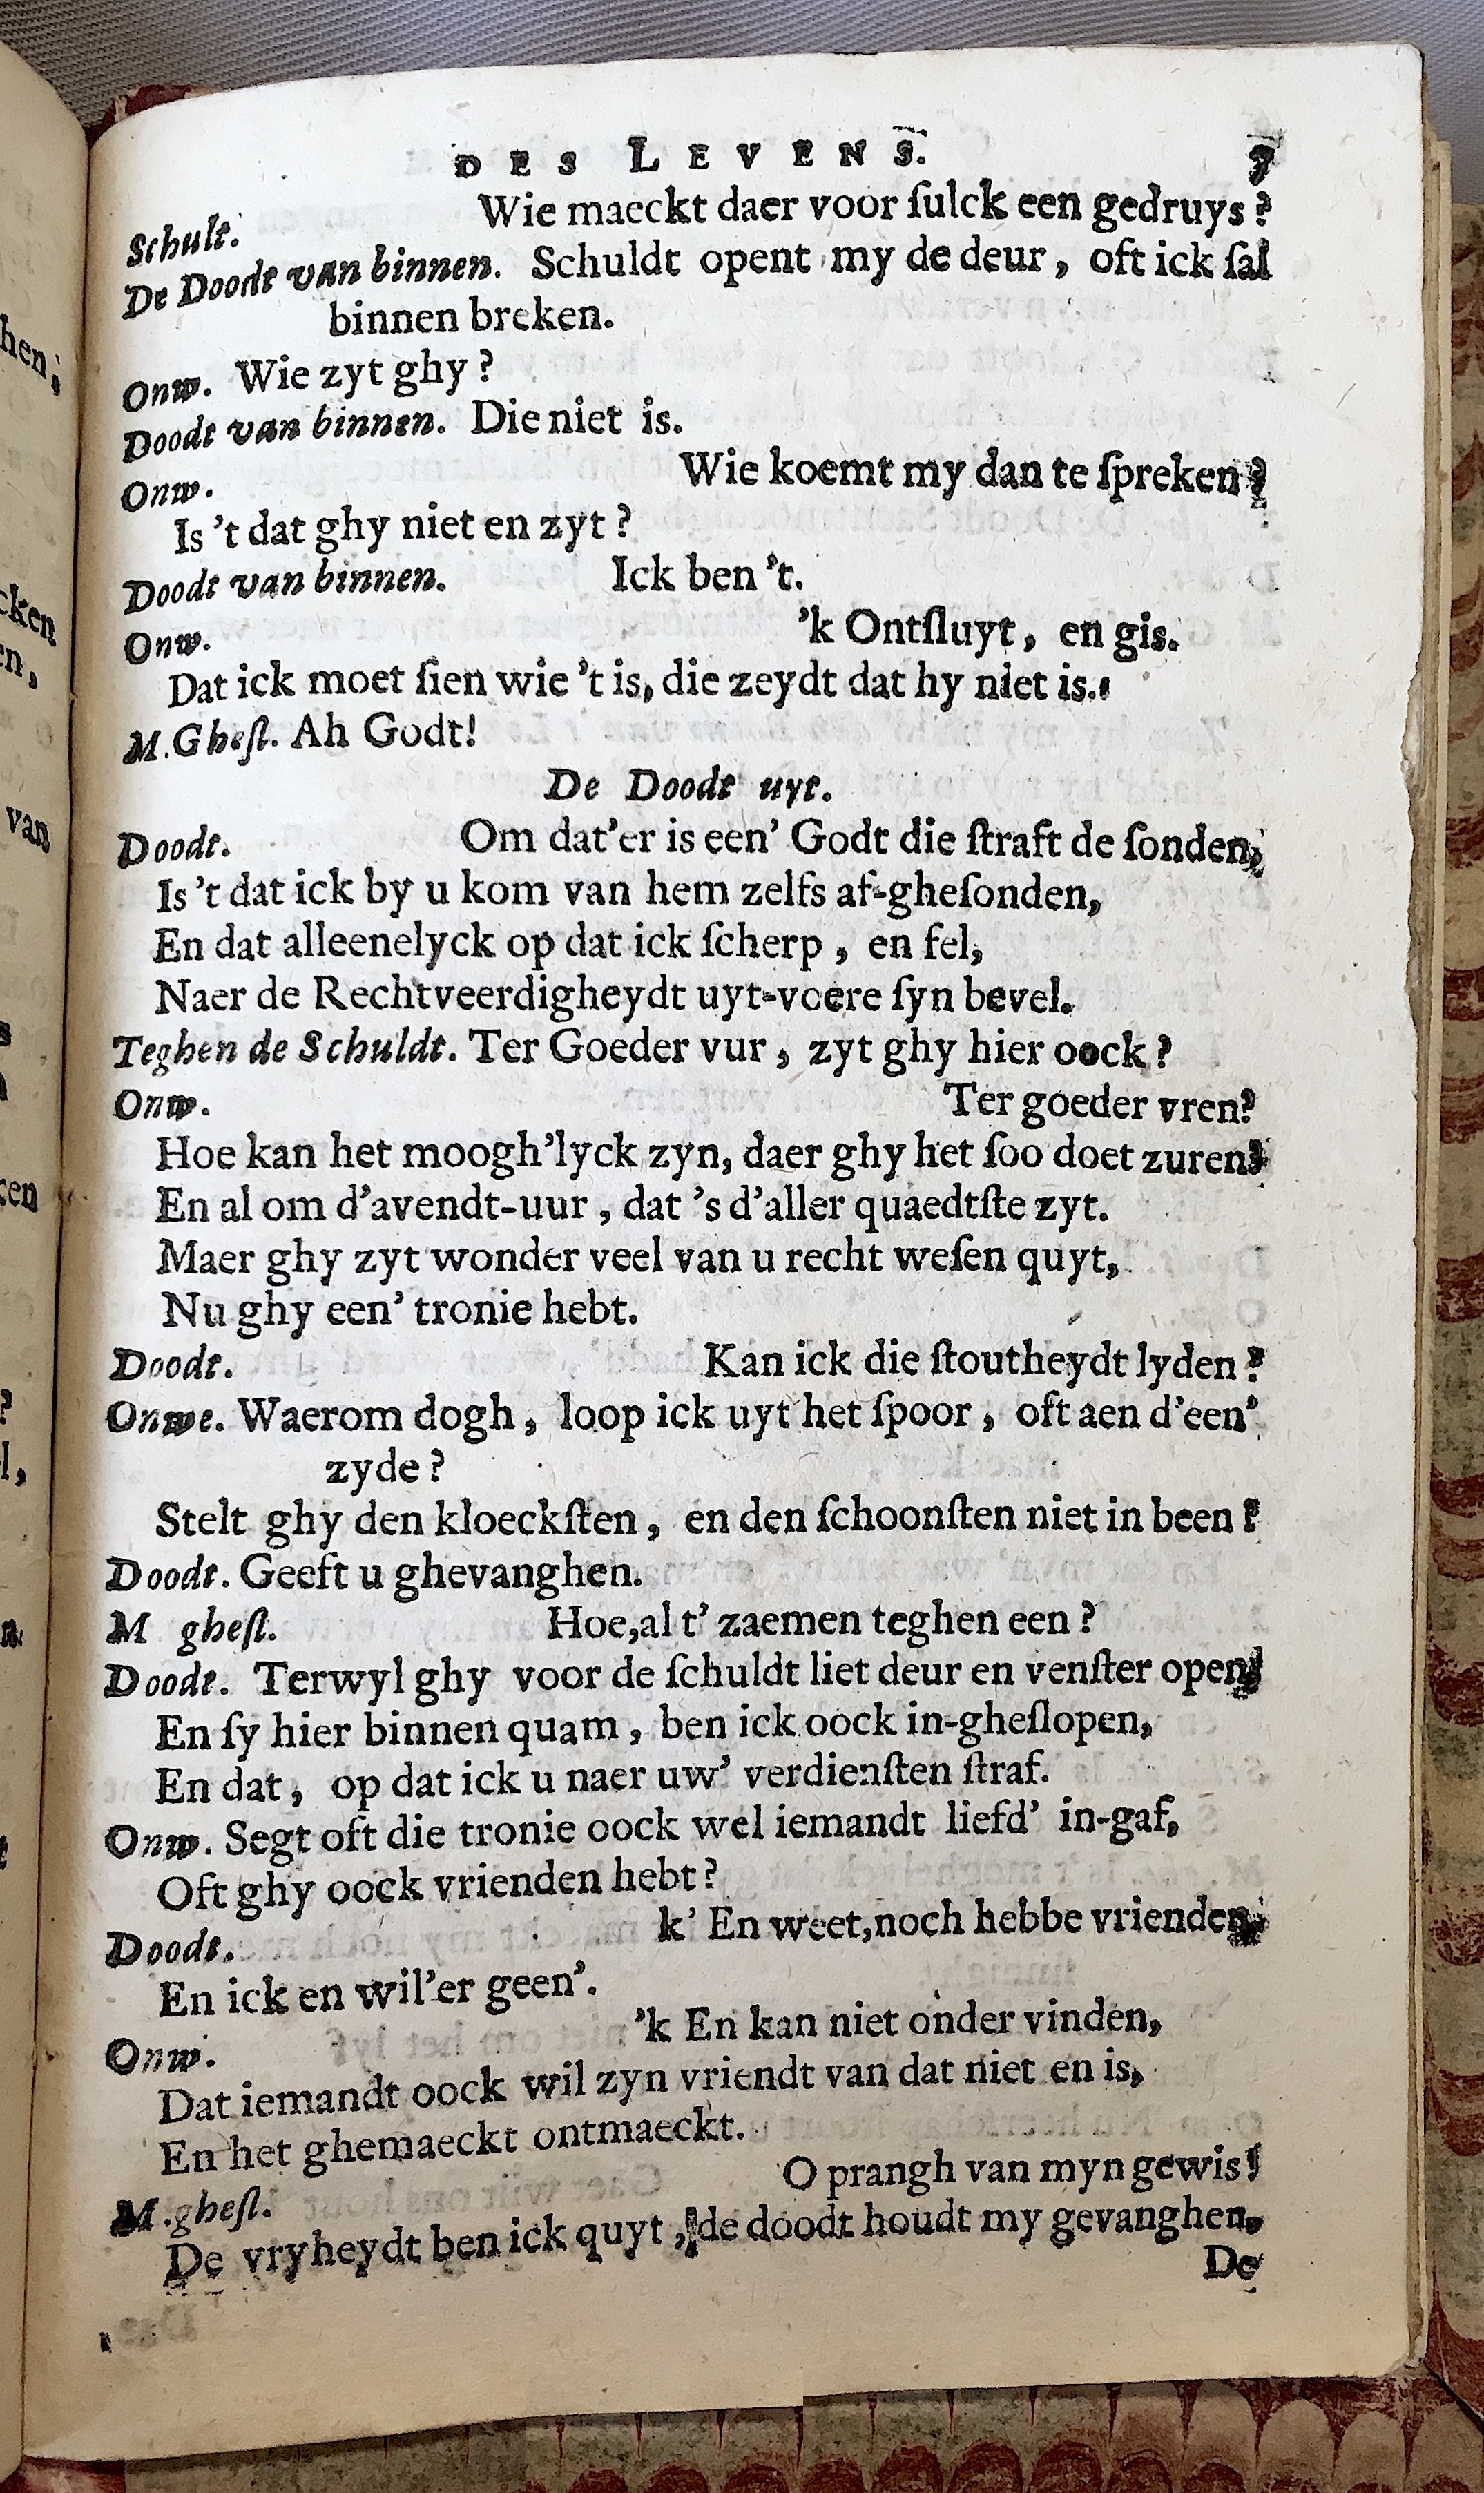 DES LEVENS. 7
Schult. Wie maeckt daer voor ſulck een gedruys?
De Doodt van binnen. Schuldt opent my de deur, oft ick ſal
binnen breken.
Onw. Wie zyt ghy?
Doodt van binnen. Die niet is.
Onw. Wie koemt my dan te ſpreken?
Is 't dat ghy niet en zyt?
Doodt van binnen. Ick ben 't.
Onw. 'k Ontſluyt, en gis.
Dat ick moet ſien wie 't is, die zeydt dat hy niet is.
M. Gheſt. Ah Godt!
De Doodt uyt.
Doodt. Om dat'er is een' Godt die ſtraft de ſonden,
Is 't dat ick by u kom van hem zelfs af-gheſonden,
En dat alleenelyck op dat ick ſcherp, en fel,
Naer de Rechtveerdigheydt uyt-voere ſyn bevel.
Teghen de Schuldt. Ter Goeder vur, zyt ghy hier oock?
Onw. Ter goeder vren?
Hoe kan het moogh'lyck zyn, daer ghy het ſoo doet zuren?
En al om d'avendt-uur, dat 's d'aller quaedtſte zyt.
Maer ghy zyt wonder veel van u recht weſen quyt,
Nu ghy een' tronie hebt.
Doodt. Kan ick die ſtoutheydt lyden?
Onwe. Waerom dogh, loop ick uyt het ſpoor, oft aen d'een'
zyde?
Stelt ghy den kloeckſten, en den ſchoonſten niet in been?
Doodt. Geeft u ghevanghen.
M gheſt. Hoe,al t' zaemen teghen een?
Doodt. Terwyl ghy voor de ſchuldt liet deur en venſter open,
En ſy hier binnen quam, ben ick oock in-gheſlopen,
En dat, op dat ick u naer uw' verdienſten ſtraf.
Onw. Segt oft die tronie oock wel iemandt liefd' in-gaf,
Oft ghy oock vrienden hebt?
Doodt. k' En weet,noch hebbe vrienden,
En ick en wil'er geen'.
Onw. 'k En kan niet onder vinden,
Dat iemandt oock wil zyn vriendt van dat niet en is,
En het ghemaeckt ontmaeckt.
M.gheſt. O prangh van myn gewis!
De vryheydt ben ick quyt, de doodt houdt my gevanghen.
De